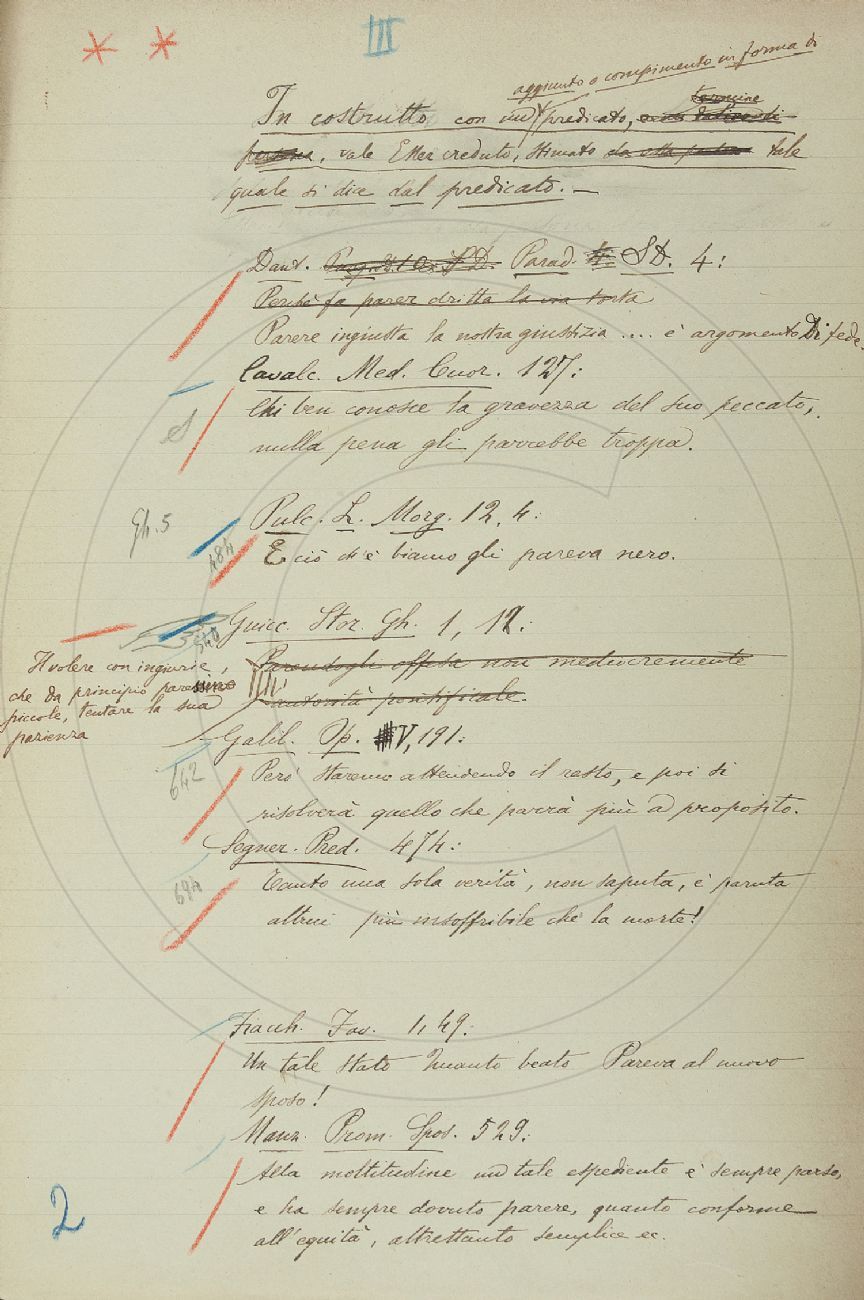 III
aggiunto o compimento in forma di
In costrutto con un predicato, termine
persona, vale Esser creduto, stimato tale
quale si dice dal predicato. —
Dant. Parad. SD. 4:
Perchè fa parer dritta la via torta
Parere ingiusta la nostra giustizia .... è argomento Di fede.
Cavalc. Med. Cuor. 127:
Chi ben conosce la gravezza del suo peccato,
nulla pena gli parrebbe troppa.
Gh. 5
Pulc. L. Morg. 12, 4:
484
E ciò ch'è bianco gli pareva nero.
Guicc. Stor. Gh. 1, 12:
540
Parendogli offesa non mediocremente
l'autorità pontificale.
Il volere con ingiurie,
che da principio paressino
piccole, tentare la sua
pazienza
Galil. Op. V, 191:
642
Però staremo attendendo il resto, e poi si
risolverà quello che parrà più a proposito.
Segner. Pred. 474:
694
Tanto una sola verità, non saputa, è paruta
altrui più insoffribile che la morte!
Fiacch. Fav. 1, 49:
Un tale stato Quanto beato Pareva al nuovo
sposo!
Manz. Prom. Spos. 529:
Alla moltitudine un tale espediente è sempre parso,
e ha sempre dovuto parere, quanto conforme
all'equità, altrettanto semplice ec.
2